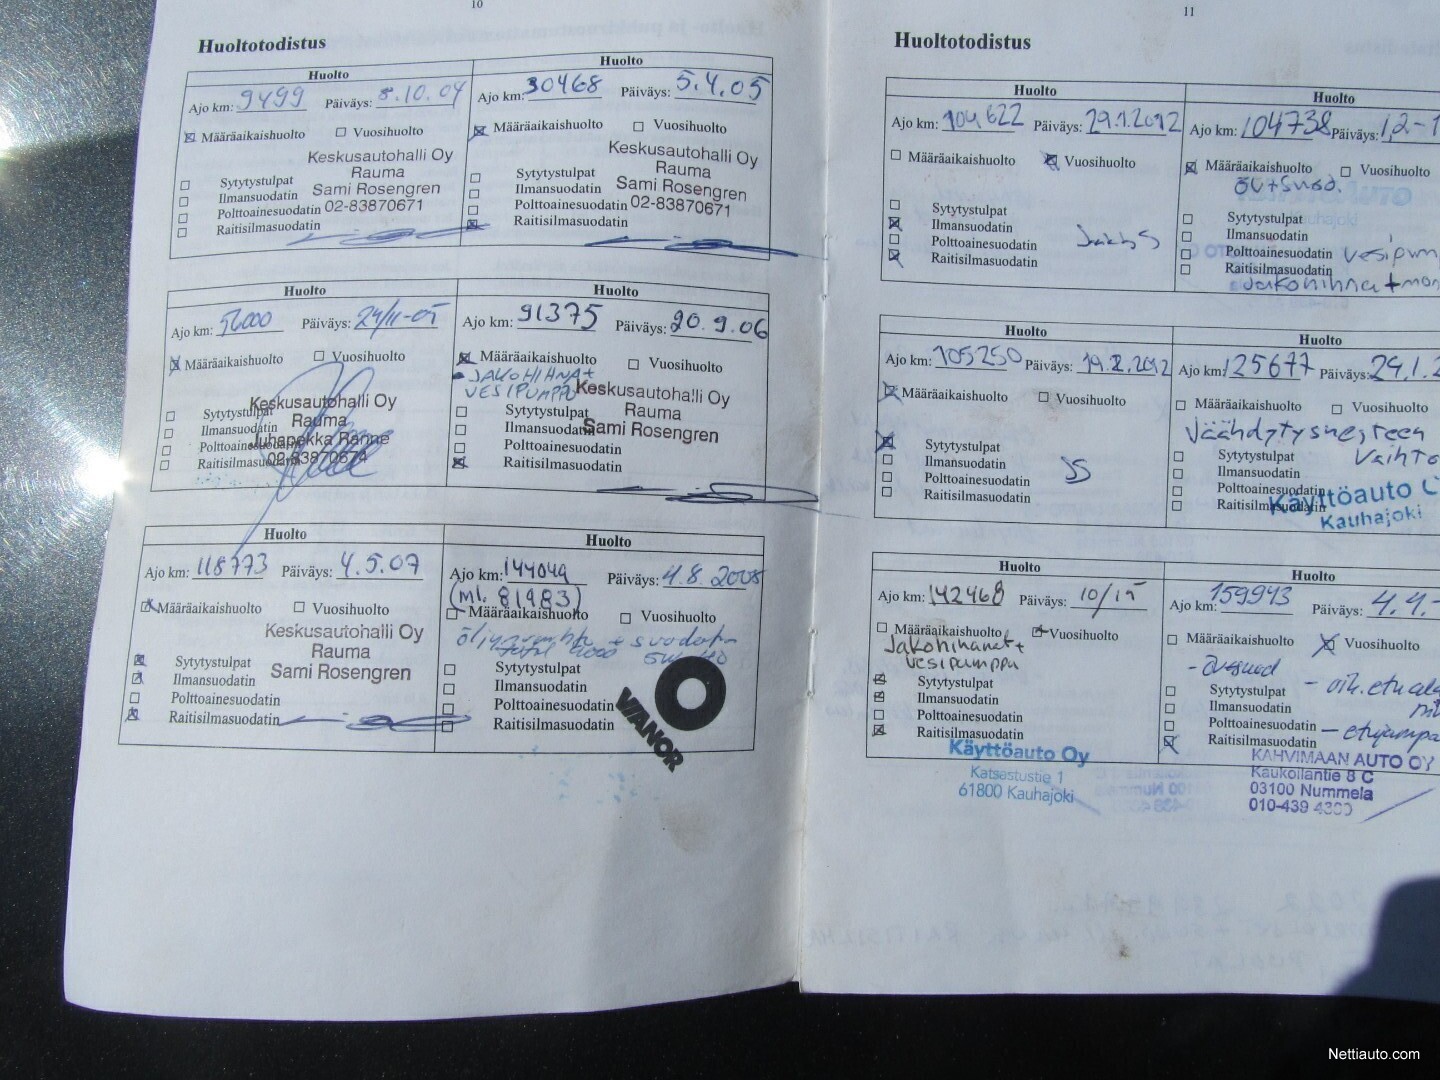 10
Huoltotodistus
Huolto
Ajo km: 9499 Päiväys: 8.10.04
Määräaikaishuolto Vuosihuolto
Keskusautohalli Oy
Rauma
Sytytystulpat
Sami Rosengren
Ilmansuodatin
Polttoainesuodatin 02-83870671
Raitisilmasuodatin
Huolto
Ajo km: 30468 Päiväys: 5.4.05
Määräaikaishuolto Vuosihuolto
Keskusautohalli Oy
Rauma
Sytytystulpat
Sami Rosengren
Ilmansuodatin
Polttoainesuodatin 02-83870671
Raitisilmasuodatin
Huolto
Ajo km: 56000 Päiväys: 24/11-05
Määräaikaishuolto Vuosihuolto
Keskusautohalli Oy
Sytytystulpat
Rauma
Ilmansuodatin
Juhapekka Ranne
Polttoainesuodatin
02-83870671
Raitisilmasuodatin
Huolto
Ajo km: 91375 Päiväys: 20.9.06
Määräaikaishuolto Vuosihuolto
JAKOHIHNA+
VESIPUMPPU
Keskusautohalli Oy
Rauma
Sytytystulpat
Sami Rosengren
Ilmansuodatin
Polttoainesuodatin
Raitisilmasuodatin
Huolto
Ajo km: 118773 Päiväys: 4.5.07
Määräaikaishuolto Vuosihuolto
Keskusautohalli Oy
Rauma
Sytytystulpat
Sami Rosengren
Ilmansuodatin
Polttoainesuodatin
Raitisilmasuodatin
Huolto
Ajo km: 144049 Päiväys: 4.8.2008
(ml. 81983)
Määräaikaishuolto Vuosihuolto
+ suodatin
Sytytystulpat
Ilmansuodatin
Polttoainesuodatin
Raitisilmasuodatin
VIANOR
11
Huoltotodistus
Huolto
Ajo km: 104622 Päiväys: 29.1.2012
Määräaikaishuolto Vuosihuolto
Sytytystulpat
Ilmansuodatin
Polttoainesuodatin
Raitisilmasuodatin
Huolto
Ajo km: 104738 Päiväys: 1,2-1
Määräaikaishuolto Vuosihuolto
öv+suod.
Sytytystulpat
Ilmansuodatin
Polttoainesuodatin vesipum
Raitisilmasuodatin
Jakohihna+mon
Huolto
Ajo km: 105250 Päiväys: 19.2.2012
Määräaikaishuolto Vuosihuolto
Sytytystulpat
Ilmansuodatin
Polttoainesuodatin JS
Raitisilmasuodatin
Huolto
Ajo km: 125677 Päiväys: 29.1.2
Määräaikaishuolto Vuosihuolto
Jäähdytysnesteen
Sytytystulpat vaihto
Ilmansuodatin
Polttoainesuodatin
Raitisilmasuodatin
Käyttöauto
Kauhajoki
Huolto
Ajo km: 142468 Päiväys: 10/15
Määräaikaishuolto Vuosihuolto
Jakohihnat+
vesipumppu
Sytytystulpat
Ilmansuodatin
Polttoainesuodatin
Raitisilmasuodatin
Käyttöauto Oy
Katsastustie 1
61800 Kauhajoki
Huolto
Ajo km: 159943 Päiväys: 4.4.-
Määräaikaishuolto Vuosihuolto
Sytytystulpat - oik.etuala
Ilmansuodatin
Polttoainesuodatin
Raitisilmasuodatin
KAHVIMAAN AUTO OY
Kaukoilantie 8 C
03100 Nummela
010-439 4300
Nettiauto.com